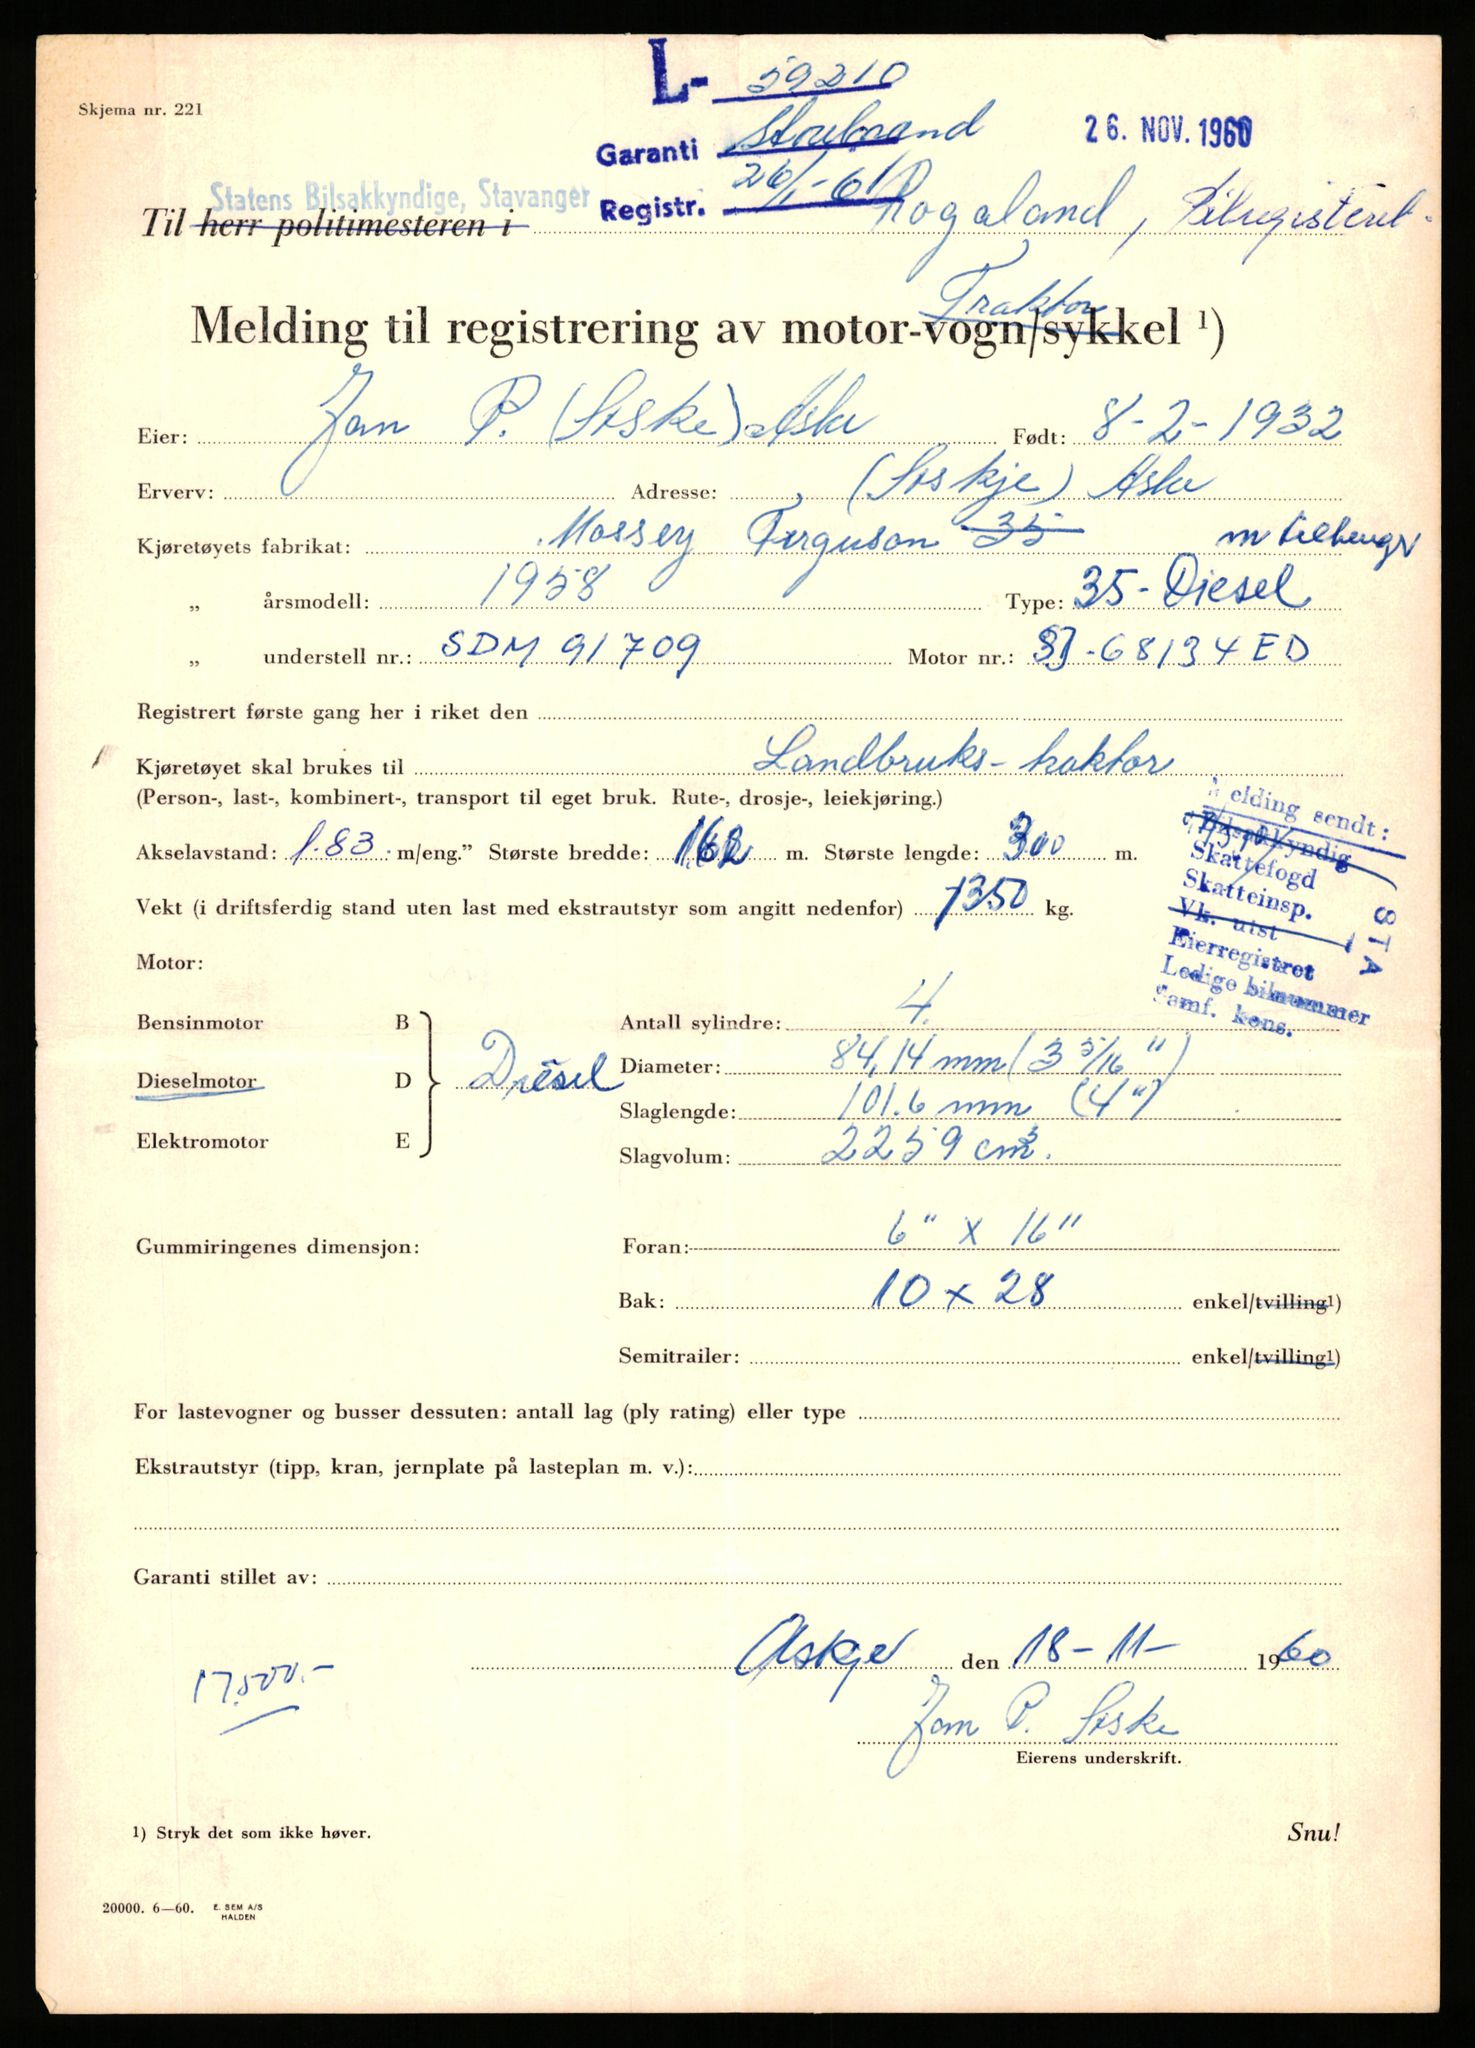 L- 59210
Skjema nr. 221
Garanti Storebrand
26. NOV. 1960
Statens Bilsakkyndige, Stavanger
Registr. 26/1-61
Til herr politimesteren i Rogaland, Bilregisteret.
Traktor
Melding til registrering av motor-vogn/sykkel ¹)
Eier: Jan P. (Seske) Aske Født: 8-2-1932
Erverv: Adresse: (Seskje) Aske
Kjøretøyets fabrikat: Massey Ferguson 35 m tilhenger
„ årsmodell: 1958 Type: 35-Diesel
„ understell nr.: SDM 91709 Motor nr.: SJ-68134 ED
Registrert første gang her i riket den
Kjøretøyet skal brukes til Landbruks-traktor
(Person-, last-, kombinert-, transport til eget bruk. Rute-, drosje-, leiekjøring.)
Melding sendt:
Bilsakkyndig
Skattefogd
Skatteinsp.
Vk. utst
Eierregistret
Ledige bilnummer
Samf. kons.
STA
Akselavstand: 1.83 m/eng.” Største bredde: 162 m. Største lengde: 300 m.
Vekt (i driftsferdig stand uten last med ekstrautstyr som angitt nedenfor) 1350 kg.
Motor:
Bensinmotor B Antall sylindre: 4.
Dieselmotor D Diesel Diameter: 84,14 mm (3 5/16")
Slaglengde: 101.6 mm (4")
Elektromotor E Slagvolum: 2259 cm³.
Gummiringenes dimensjon: Foran: 6" x 16"
Bak: 10 x 28 enkel/tvilling¹)
Semitrailer: enkel/tvilling¹)
For lastevogner og busser dessuten: antall lag (ply rating) eller type
Ekstrautstyr (tipp, kran, jernplate på lasteplan m. v.):
Garanti stillet av:
Askje den 18-11- 1960
17.500.-
Jan P. Seske
Eierens underskrift.
1) Stryk det som ikke høver.
Snu!
20000. 6—60. E. SEM A/S
HALDEN